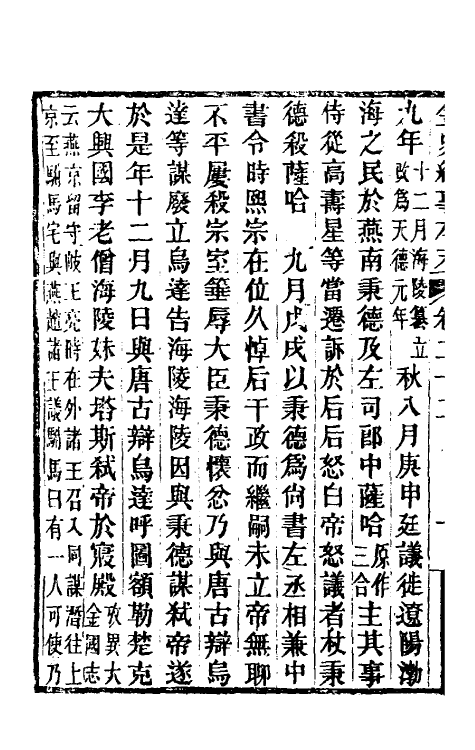 金史紀事本末 卷二十二 一
九年十二月海陵纂立改爲天德元年 秋八月庚申廷議徙遼陽渤
海之民於燕南秉德及左司郎中薩哈原作三合主其事
侍從高壽星等當遷訴於后后怒白帝怒議者杖秉
德殺薩哈 九月戊戌以秉德爲尚書左丞相兼中
書令時熙宗在位久悼后干政而繼嗣未立帝無聊
不平屢殺宗室箠辱大臣秉德懷忿乃與唐古辯烏
達等謀廢立烏達告海陵海陵因與秉德謀弑帝遂
於是年十二月九日與唐古辯烏達呼圖額勒楚克
大興國李老僧海陵妹夫塔斯弑帝於寢殿攷異大金國志
云燕京留守岐王亮時在外諸王召入同謀潛往上
京至駙馬宅與燕趙諸王議駙馬曰有一人可使乃